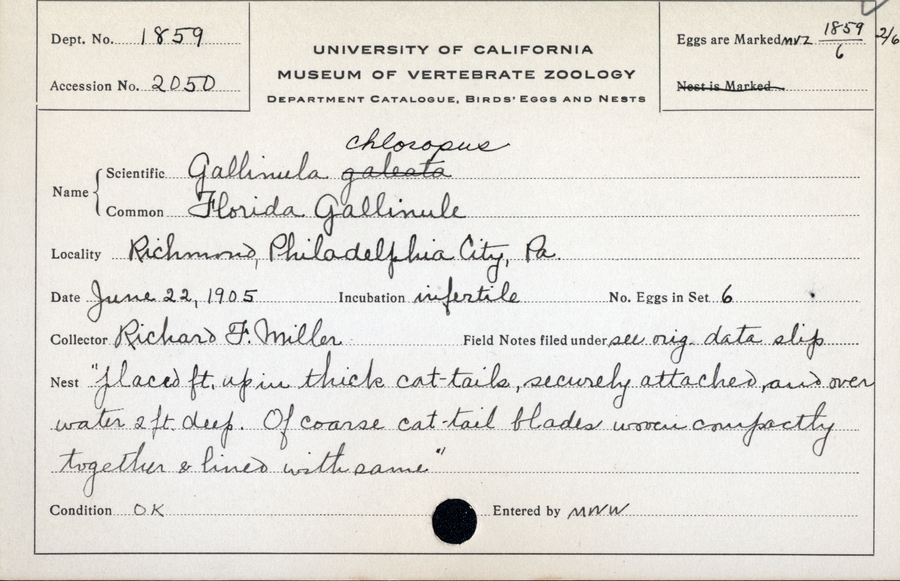 Dept. No. 1859
Accession No. 2050
UNIVERSITY OF CALIFORNIA
MUSEUM OF VERTEBRATE ZOOLOGY
DEPARTMENT CATALOGUE, BIRDS' EGGS AND NESTS
Eggs are Marked MVZ 1859/6 2/6
Nest is Marked
chloropus
Name { Scientific Gallinula galeata
Common Florida Gallinule
Locality Richmond, Philadelphia City, Pa.
Date June 22, 1905 Incubation infertile No. Eggs in Set 6
Collector Richard F. Miller Field Notes filed under see orig. data slip
Nest "placed ft. up in thick cat-tails, securely attached, and over
water 2 ft. deep. Of coarse cat-tail blades woven compactly
together & lined with same"
Condition OK Entered by MWW